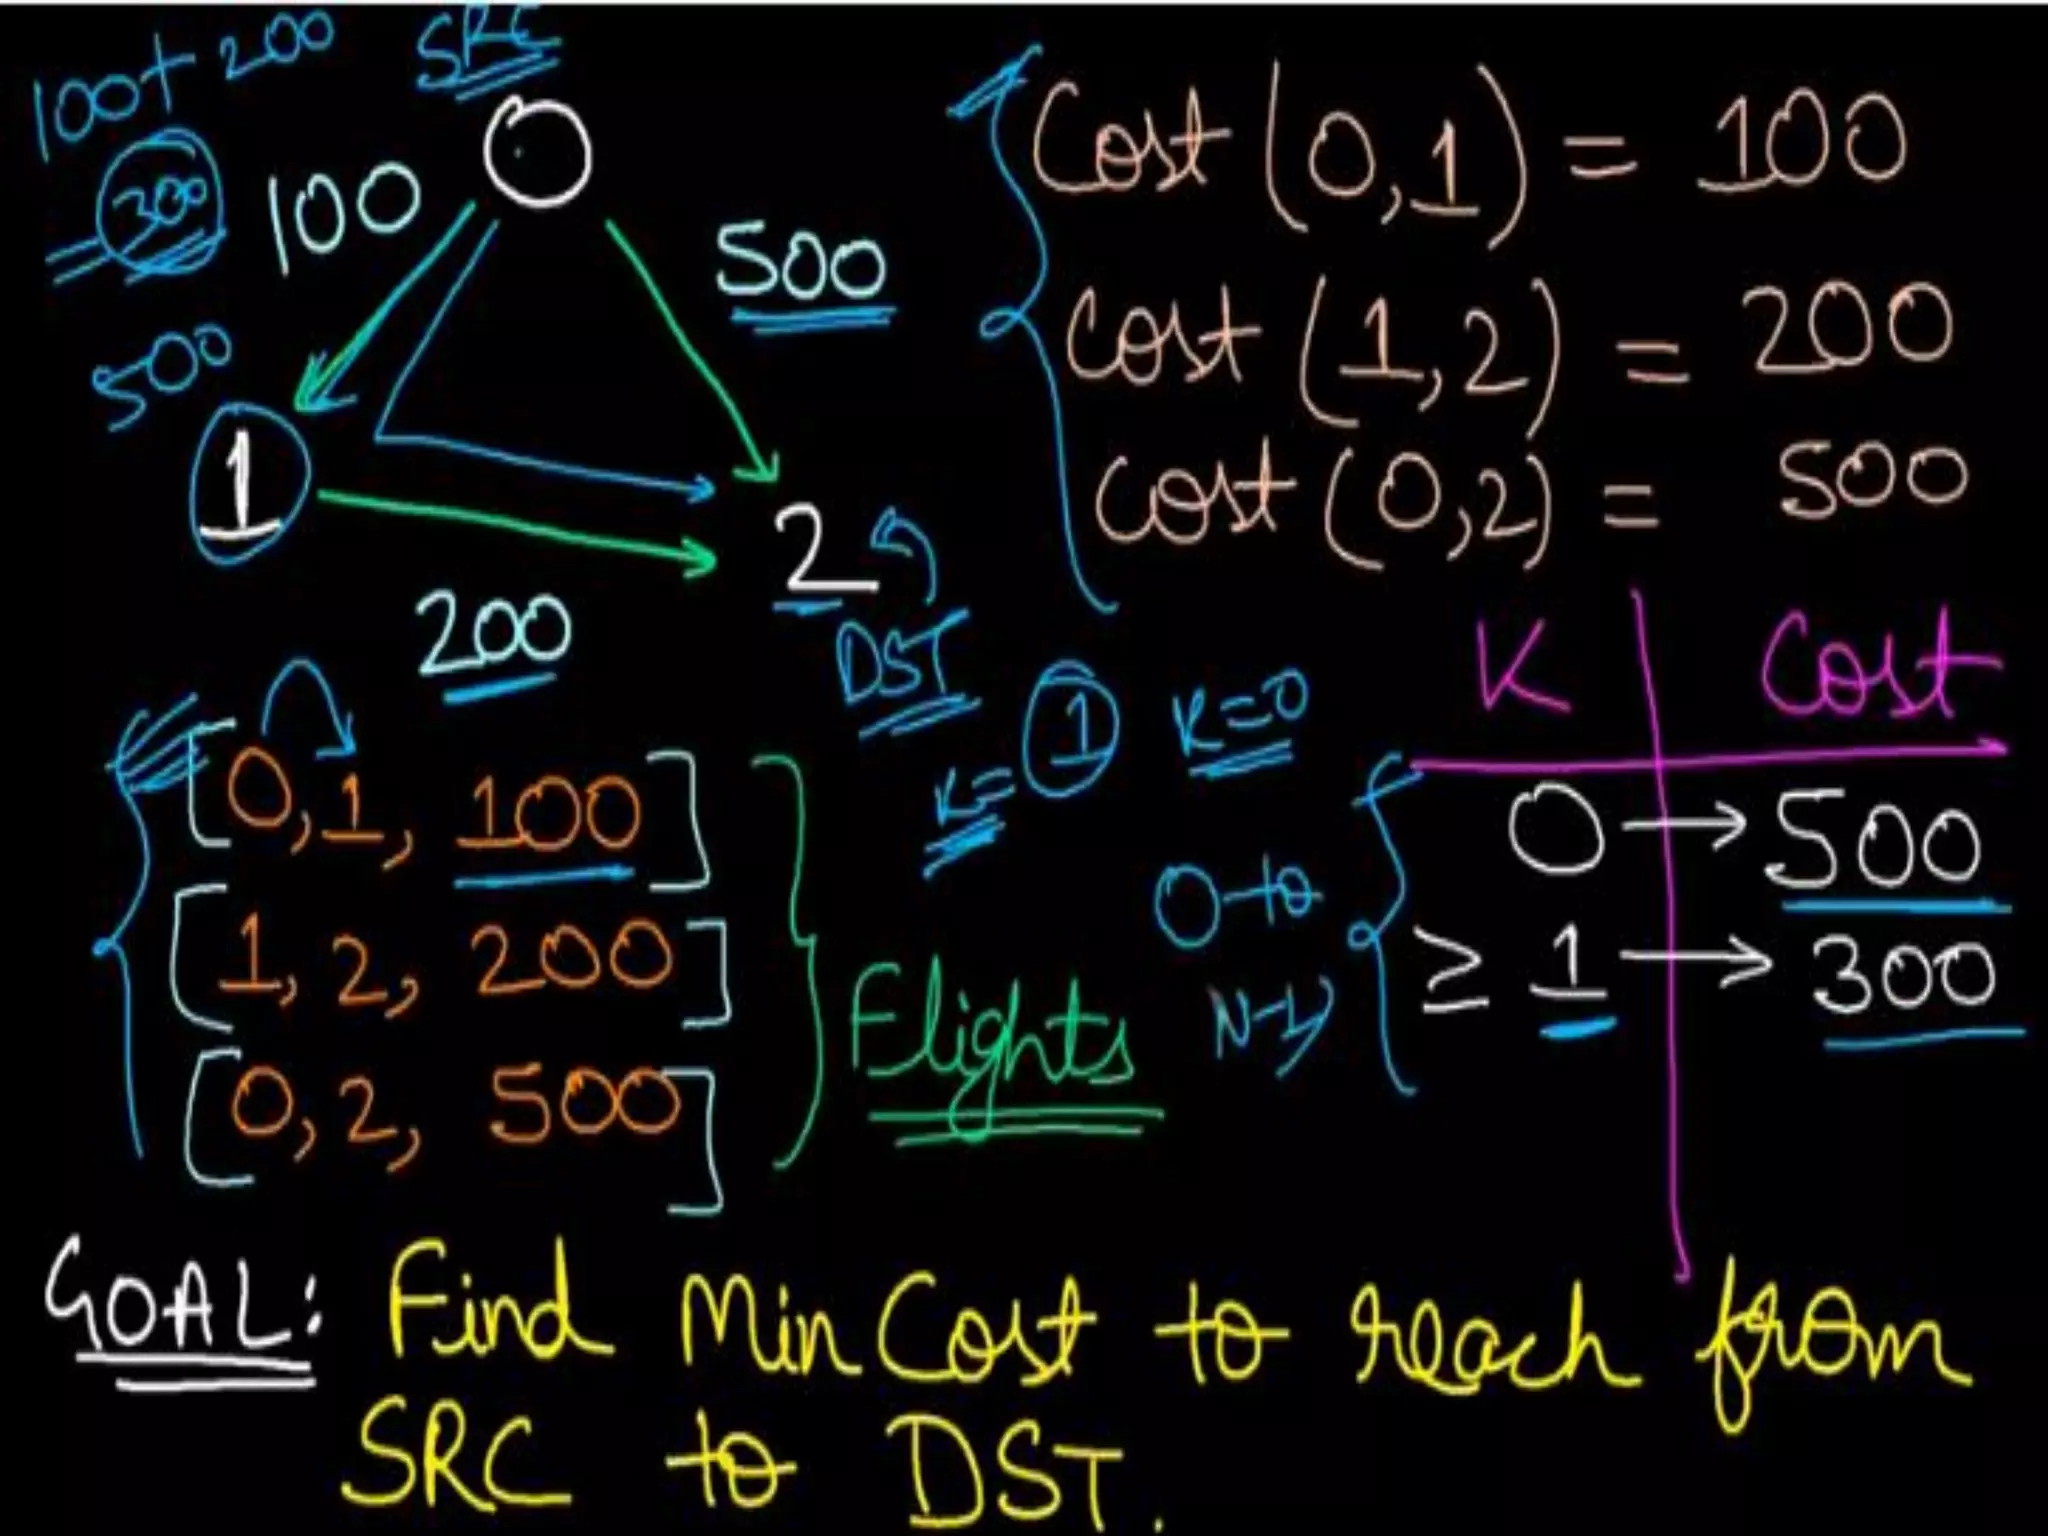 100+ 200
SRC
300
0
100
500
500
1
2
DST
200
Cost (0,1) = 100
Cost (1,2) = 200
Cost (0,2) = 500
K= 1
K=0
K Cost
0 → 500
≥ 1 → 300
0 to
N-1
[0, 1, 100]
[1, 2, 200]
[0, 2, 500]
Flights
GOAL: Find Min Cost to reach from
SRC to DST.